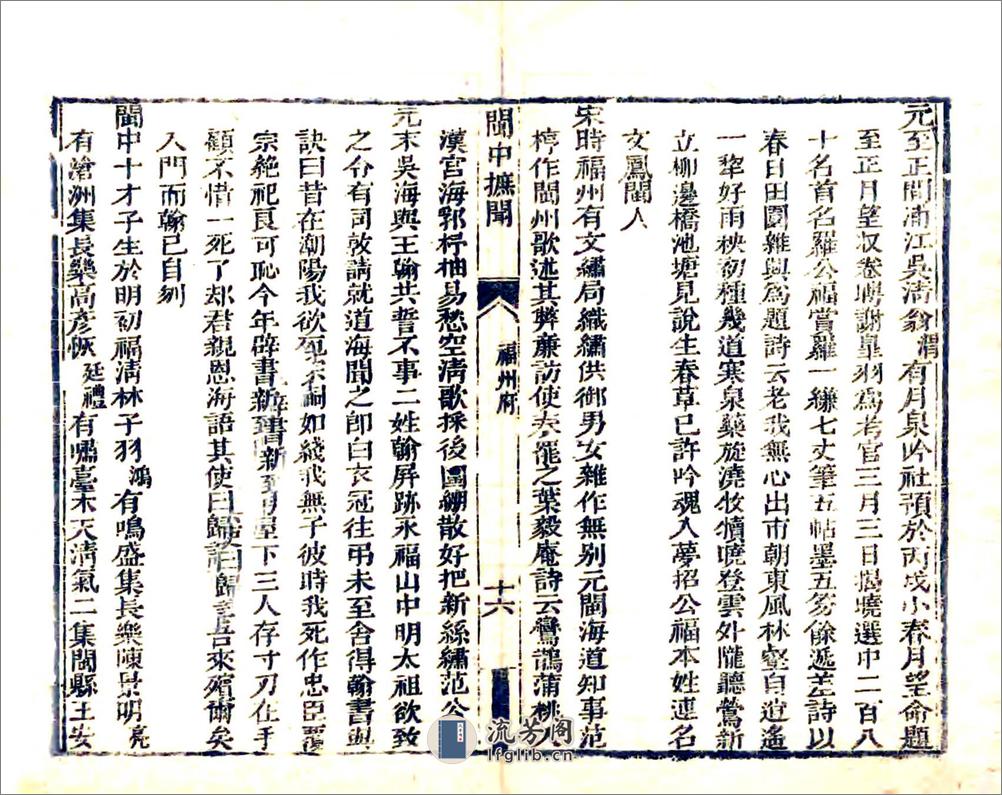 元至正間浦江吳清翁渭有月泉吟社預於丙戌小春月望命題
至正月望收卷聘謝臯羽為考官三月三日揭曉選中二百八
十名首名羅公福賞羅一縑七丈筆五帖墨五笏餘遞差詩以
春日田園雜興為題詩云老我無心出市朝東風林壑自逍遙
一犂好雨秧初種幾道寒泉藥旋澆牧犢曉登雲外隴聽鶯新
立柳邊橋池塘見說生春草已許吟魂入夢招公福本姓連名
文鳳閩人
宋時福州有文繡局織繡供御男女雜作無別元閩海道知事范
梈作閩州歌述其弊廉訪使奏罷之葉毅庵詩云鸞鵲蒲桃
閩中摭聞
福州府
十六
漢宮海鄂杼柚易愁空清歌採後圖繃散好把新絲繡范公
元末吳海與王翰共誓不事二姓翰屏跡永福山中明太祖欲致
之令有司敦請就道海聞之即白衣冠往弔未至舍得翰書與
訣曰昔在潮陽我欲死宗嗣如綫我無子彼時我死作忠臣覆
宗絕祀良可恥今年辟書新到門屋下三人存寸刃在手
顧不惜一死了却君親恩海語其使曰歸語吾來殯爾矣
入門而翰已自刎
閩中十才子生於明初福清林子羽鴻有鳴盛集長樂陳景明亮
有滄洲集長樂高彥恢廷禮有嘯臺木天清氣二集閩縣王安
流芳阁
lfglib.cn